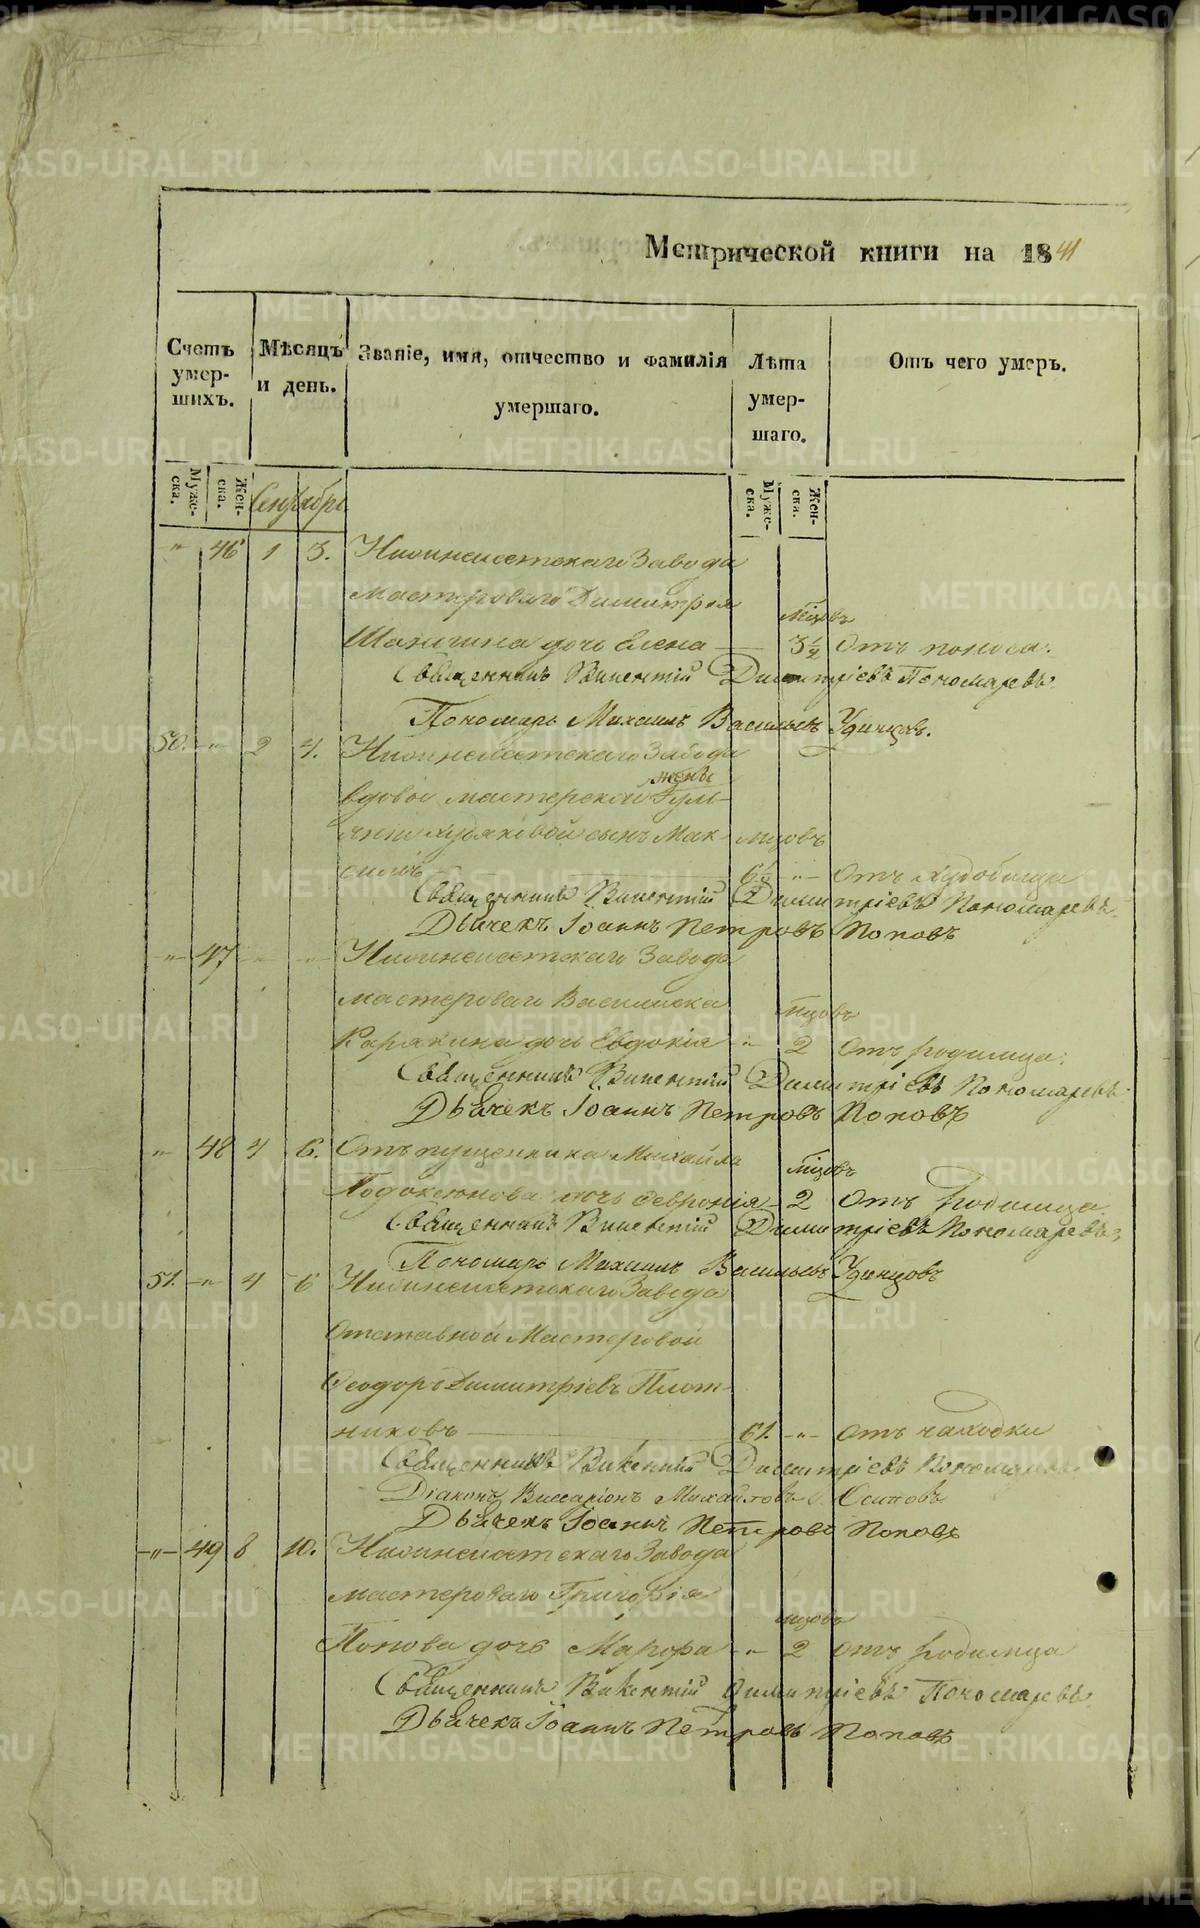 METRIKI.GASO-URAL.RU
Метрической книги на 1841
Счетъ умер-шихъ.
Мѣсяцъ и день.
Званіе, имя, отчество и фамилія умершаго.
Лѣта умер-шаго.
Отъ чего умеръ.
Муже-ска.
Жен-ска.
Сентябрь
Муже-ска.
Жен-ска.
" 46 1 3. Нижнеисетскаго Завода
мастероваго Димитрія
мѣсцовъ
дочь Елена 3 1/2 Отъ поноса.
Священникъ Викентій Димитріевъ Пономаревъ.
Пономарь Михаилъ Васильевъ Удинцовъ.
50. " 2 4. Нижнеисетскаго Завода
жены
вдовой мастерской Гуль-
Худяковой сынъ Мак- мѣсцовъ
симъ " Отъ
Священникъ Викентій Димитріевъ Пономаревъ.
Дьячекъ Іоаннъ Петровъ Поповъ
" 47 " " Нижнеисетскаго Завода
мастероваго
мѣсцовъ
Карякина дочь Евдокія " 2 Отъ родимца.
Священникъ Викентій Димитріевъ Пономаревъ.
Дьячекъ Іоаннъ Петровъ Поповъ
" 48 4 6. Отъпущенника Михайла
мѣсцовъ
дочь Февронія 2 Отъ Родимца.
Священникъ Викентій Димитріевъ Пономаревъ,
Пономарь Михаилъ Васильевъ Удинцовъ
51. " 4 6 Нижнеисетскаго Завода
Отставной Мастеровой
Ѳеодоръ Димитріевъ Плот-
никовъ 61. " Отъ чахотки
Священникъ Викентій Димитріевъ Пономаревъ
Діаконъ Виссаріонъ Михайловъ Осиповъ
Дьячекъ Іоаннъ Петровъ Поповъ
" 49 8 10. Нижнеисетскаго Завода
мастероваго Григорія
мѣсцовъ
Попова дочь Марфа " 2 отъ родимца
Священникъ Викентій Димитріевъ Пономаревъ.
Дьячекъ Іоаннъ Петровъ Поповъ